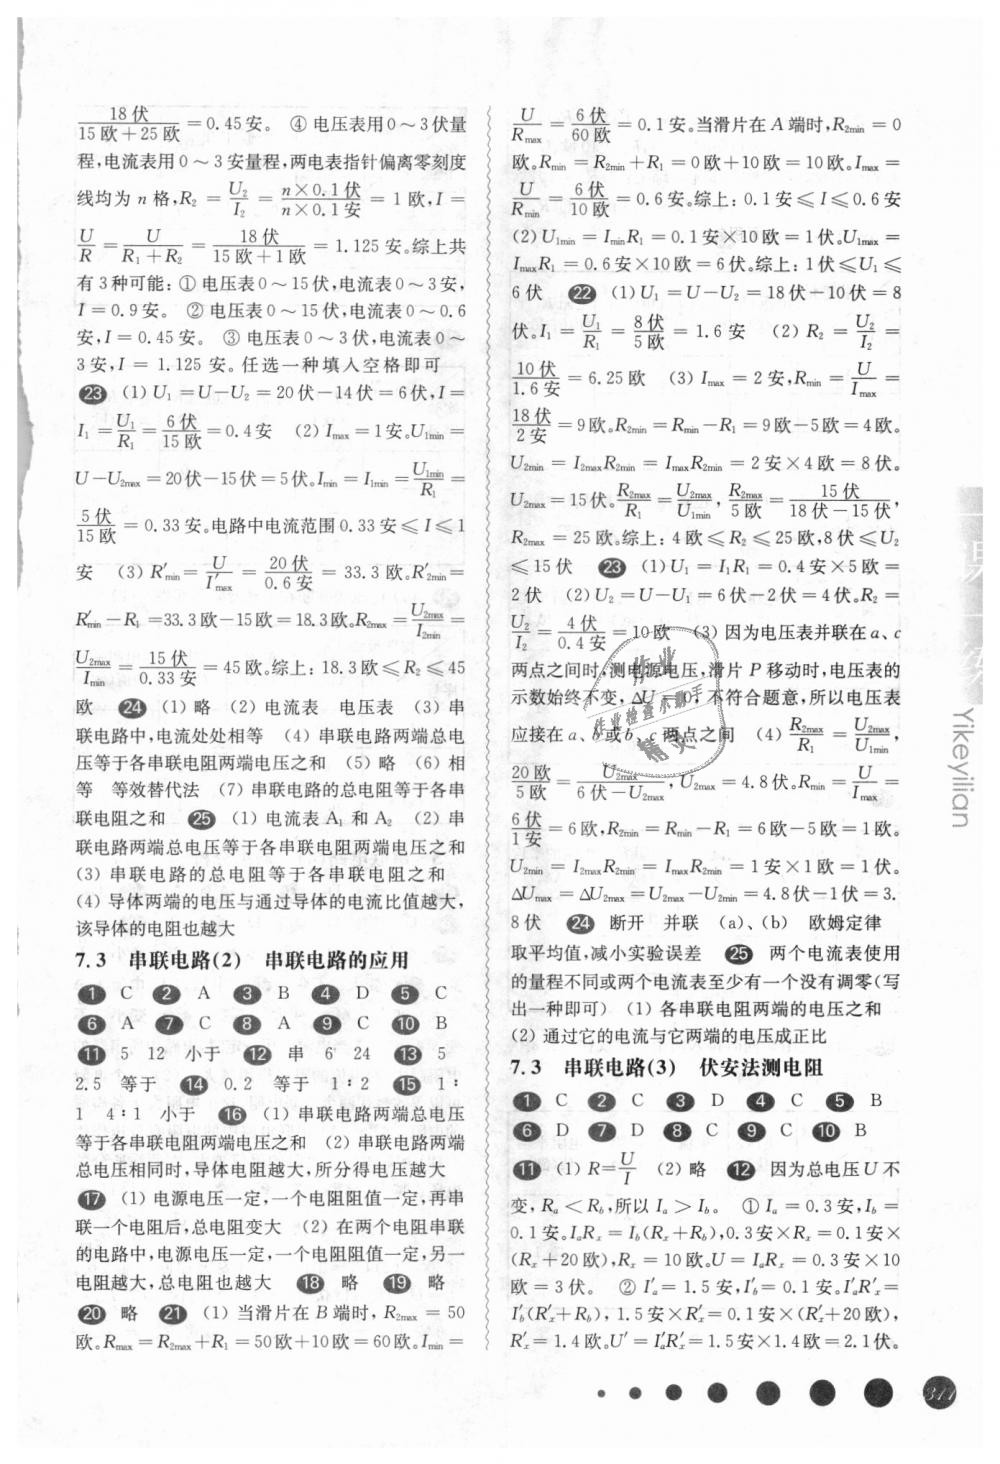 18伏/(15欧+25欧)=0.45安。 ④ 电压表用0～3伏量
程,电流表用0～3安量程,两电表指针偏离零刻度
线均为n格,R₂=U₂/I₂=(n×0.1伏)/(n×0.1安)=1欧,I=
U/R=U/(R₁+R₂)=18伏/(15欧+1欧)=1.125安。综上共
有3种可能:① 电压表0～15伏,电流表0～3安,
I=0.9安。 ② 电压表0～15伏,电流表0～0.6
安,I=0.45安。 ③ 电压表0～3伏,电流表0～
3安,I=1.125安。任选一种填入空格即可
23 (1) U₁=U−U₂=20伏−14伏=6伏,I=
I₁=U₁/R₁=6伏/15欧=0.4安 (2) Imax=1安。U1min=
U−U2max=20伏−15伏=5伏。Imin=I1min=U1min/R₁=
5伏/15欧=0.33安。电路中电流范围0.33安≤I≤1
安 (3) R′min=U/I′max=20伏/0.6安=33.3欧。R′2min=
R′min−R₁=33.3欧−15欧=18.3欧。R2max=U2max/I2min=
U2max/Imin=15伏/0.33安=45欧。综上:18.3欧≤R₂≤45
欧 24 (1) 略 (2) 电流表 电压表 (3) 串
联电路中,电流处处相等 (4) 串联电路两端总电
压等于各串联电阻两端电压之和 (5) 略 (6) 相
等 等效替代法 (7) 串联电路的总电阻等于各串
联电阻之和 25 (1) 电流表A₁和A₂ (2) 串
联电路两端总电压等于各串联电阻两端电压之和
(3) 串联电路的总电阻等于各串联电阻之和
(4) 导体两端的电压与通过导体的电流比值越大,
该导体的电阻也越大
7.3 串联电路(2) 串联电路的应用
1 C 2 A 3 B 4 D 5 C
6 A 7 C 8 A 9 C 10 B
11 5 12 小于 12 串 6 24 13 5
2.5 等于 14 0.2 等于 1∶2 15 1∶
1 4∶1 小于 16 (1) 串联电路两端总电压
等于各串联电阻两端电压之和 (2) 串联电路两端
总电压相同时,导体电阻越大,所分得电压越大
17 (1) 电源电压一定,一个电阻阻值一定,再串
联一个电阻后,总电阻变大 (2) 在两个电阻串联
的电路中,电源电压一定,一个电阻阻值一定,另一
电阻越大,总电阻也越大 18 略 19 略
20 略 21 (1) 当滑片在B端时,R2max=50
欧。Rmax=R2max+R₁=50欧+10欧=60欧。Imin=
U/Rmax=6伏/60欧=0.1安。当滑片在A端时,R2min=0
欧。Rmin=R2min+R₁=0欧+10欧=10欧。Imax=
U/Rmin=6伏/10欧=0.6安。综上:0.1安≤I≤0.6安
(2) U1min=IminR₁=0.1安×10欧=1伏。U1max=
ImaxR₁=0.6安×10欧=6伏。综上:1伏≤U₁≤
6伏 22 (1) U₁=U−U₂=18伏−10伏=8
伏。I₁=U₁/R₁=8伏/5欧=1.6安 (2) R₂=U₂/I₂=
10伏/1.6安=6.25欧 (3) Imax=2安,Rmin=U/Imax=
18伏/2安=9欧。R2min=Rmin−R₁=9欧−5欧=4欧。
U2min=I2maxR2min=ImaxR2min=2安×4欧=8伏。
U2max=15伏。R2max/R₁=U2max/U1min,R2max/5欧=15伏/(18伏−15伏),
R2max=25欧。综上:4欧≤R₂≤25欧,8伏≤U₂
≤15伏 23 (1) U₁=I₁R₁=0.4安×5欧=
2伏 (2) U₂=U−U₁=6伏−2伏=4伏。R₂=
U₂/I₂=4伏/0.4安=10欧 (3) 因为电压表并联在a、c
两点之间时,测电源电压,滑片P移动时,电压表的
示数始终不变,ΔU=0,不符合题意,所以电压表
应接在a、b或b、c两点之间 (4) R2max/R₁=U2max/U1min,
20欧/5欧=U2max/(6伏−U2max),U2max=4.8伏。Rmin=U/Imax=
6伏/1安=6欧,R2min=Rmin−R₁=6欧−5欧=1欧。
U2min=I2maxR2min=ImaxR2min=1安×1欧=1伏。
ΔUmax=ΔU2max=U2max−U2min=4.8伏−1伏=3.
8伏 24 断开 并联 (a)、(b) 欧姆定律
取平均值,减小实验误差 25 两个电流表使用
的量程不同或两个电流表至少有一个没有调零(写
出一种即可) (1) 各串联电阻两端的电压之和
(2) 通过它的电流与它两端的电压成正比
7.3 串联电路(3) 伏安法测电阻
1 C 2 C 3 D 4 C 5 B
6 D 7 D 8 C 9 C 10 B
11 (1) R=U/I (2) 略 12 因为总电压U不
变,Ra<Rb,所以Ia>Ib。 ① Ia=0.3安,Ib=
0.1安。IaRx=Ib(Rx+Rb),0.3安×Rx=0.1安×
(Rx+20欧),Rx=10欧。U=IaRx=0.3安×10
欧=3伏。 ② I′a=1.5安,I′b=0.1安。I′aR′x=
I′b(R′x+Rb),1.5安×R′x=0.1安×(R′x+20欧),
R′x=1.4欧。U′=I′aR′x=1.5安×1.4欧=2.1伏。
一课一练
Yikeyilian
作业
作业检查小助手
精灵
317